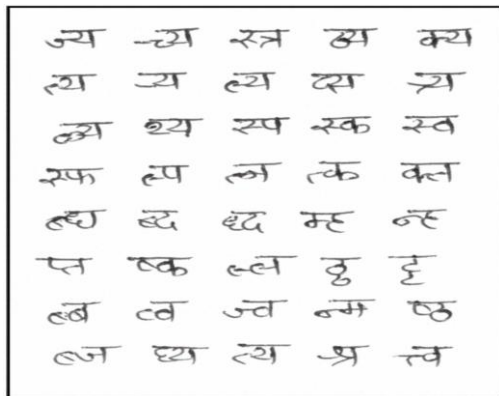 ज्य च्य स्त्र ठ्य क्य
त्य ज्य ल्य त्स त्र्य
ळ्य थ्य स्प स्क स्व
स्फ ल्प त्न त्क क्ल
ब्ध ब्द द्ध म्ह न्ह
प्त ष्क ल्ल ट्ठ ट्ट
ल्ब त्व ज्व न्म ष्ठ
ब्ज ध्य त्य श्र त्त्व